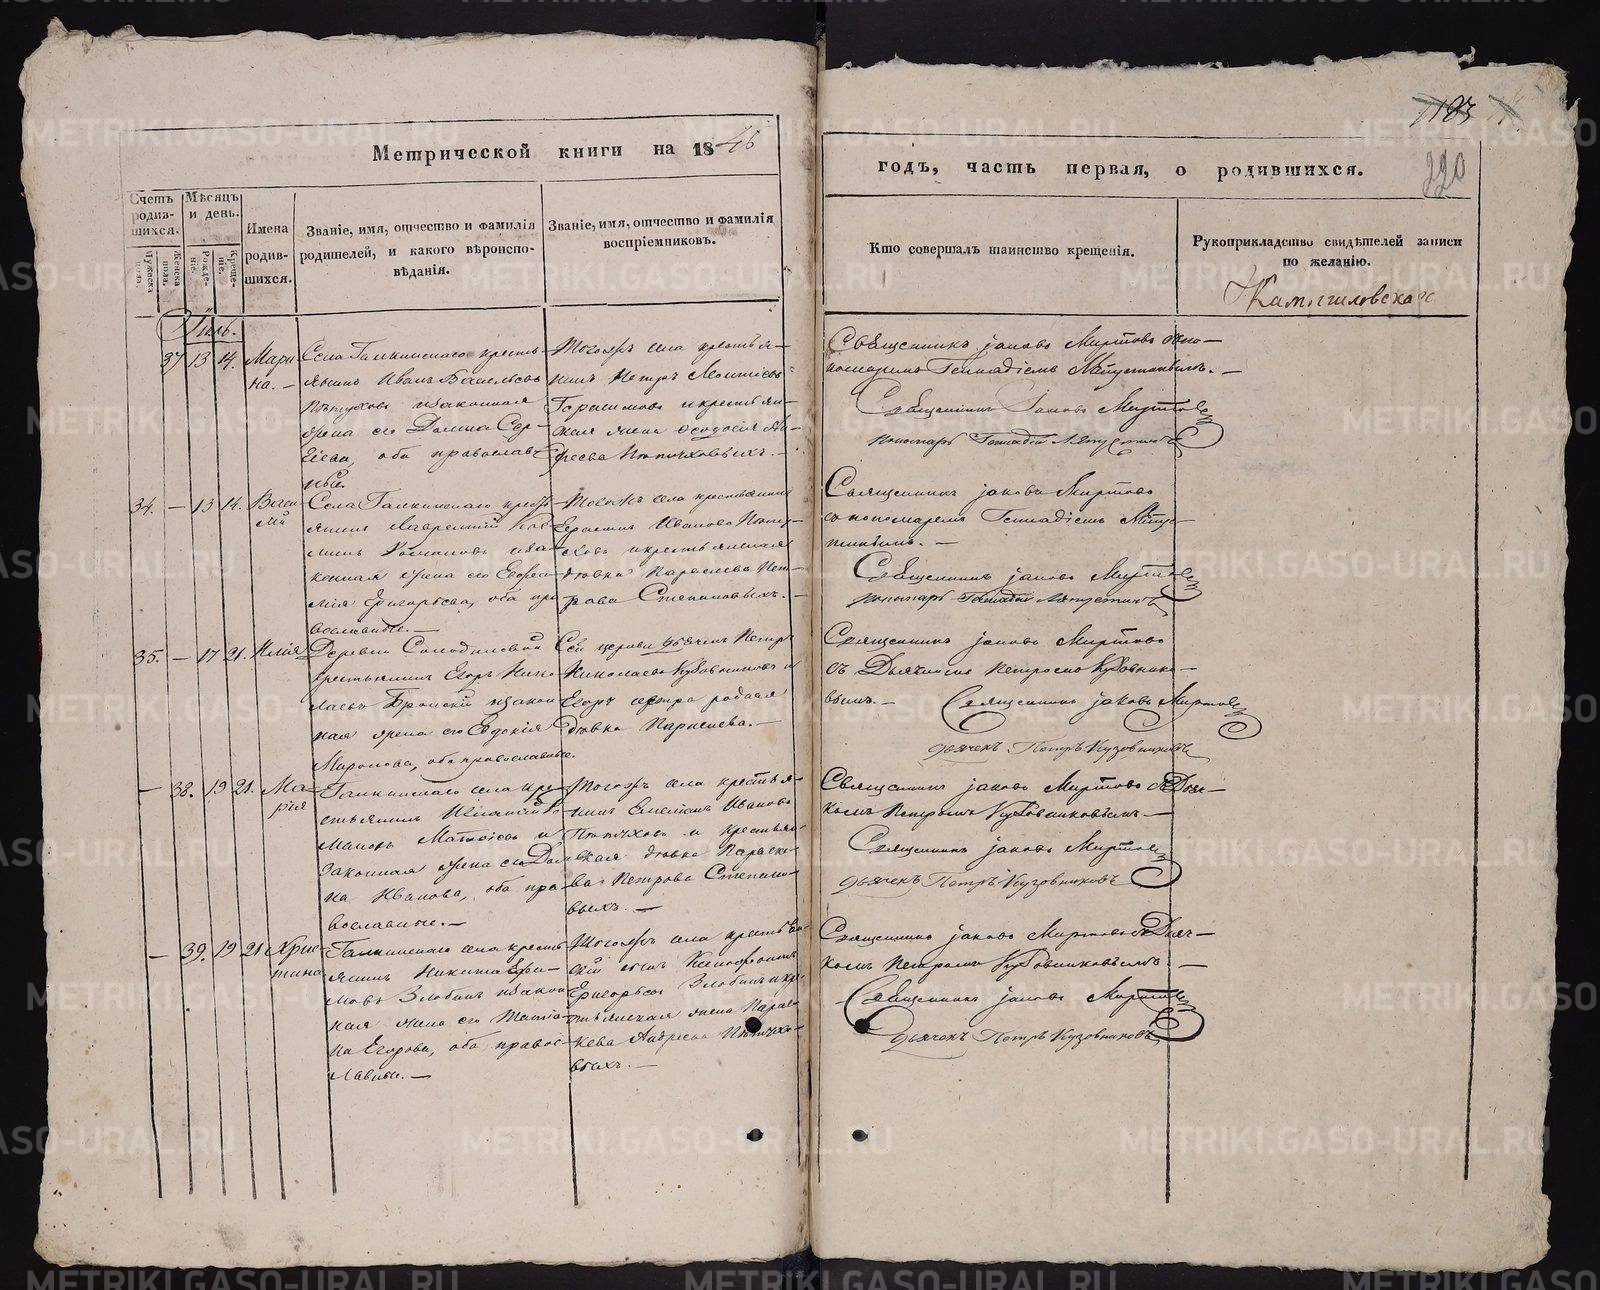 Метрической книги на 1845
годъ, часть первая, о родившихся.
193
220
Счетъ родив-шихся.
Мужеска пола.
Женска пола.
Мѣсяцъ и день.
Рожде-ніе.
Креще-ніе.
Имена родив-шихся.
Званіе, имя, отчество и фамилія
родителей, и какого вѣроиспо-
вѣданія.
Званіе, имя, отчество и фамилія
воспріемниковъ.
Кто совершалъ таинство крещенія.
Рукоприкладство свидѣтелей записи
по желанію.
Камышловскаго
Іюль.
37 13 14. Мари-
на. —
Села Галкинскаго кресть-
янинъ Иванъ
и законная
жена его Домна Сер-
гіева, оба православ-
ные.
Тогожъ села крестья-
нинъ Петръ Леонтіевъ
Герасимовъ и крестьян-
ская жена Ѳеодосія Ан-
дреева Пѣтуховыхъ. —
Священникъ Іаковъ Миртовъ съ по-
номаремъ Геннадіемъ
Священникъ Іаковъ Миртовъ
пономарь Геннадій
34. — 13 14. Васи-
лій
Села Галкинскаго кресть-
янинъ Лаврентій
и за-
конная жена его Евфи-
мія Григорьева, оба пра-
вославные. —
Тогожъ села крестьянинъ
Иванов Пѣту-
ховъ и крестьянская
дѣвка Параскева Пет-
рова Степановыхъ. —
Священникъ Іаковъ Миртовъ
съ пономаремъ Геннадіемъ
Священникъ Іаковъ Миртовъ
пономарь Геннадій
35. — 17 21. Илія
Деревни Солодиловой
крестьянинъ Егоръ Нико-
лаевъ и закон-
ная жена его Евдокія
Миронова, оба православные.
Сей церкви дьячекъ Петръ
Николаевъ Кузовниковъ и
Егора сестра родная
дѣвка
Священникъ Іаковъ Миртовъ
съ Дьячкомъ Петромъ Кузовнико-
вымъ. — Священникъ Іаковъ Миртовъ
дьячекъ Петръ Кузовниковъ
— 38. 19 21. Ма-
рія
Галкинскаго села кре-
стьянинъ
и
законная жена его Дом-
на Иванова, оба пра-
вославные. —
Тогожъ села крестья-
нинъ Ивановъ
Пѣтуховъ и крестьян-
ская дѣвка Параске-
ва Петрова Степано-
выхъ. —
Священникъ Іаковъ Миртовъ съ Дьяч-
комъ Петромъ Кузовниковымъ. —
Священникъ Іаковъ Миртовъ
дьячекъ Петръ Кузовниковъ
— 39. 19 21 Хрис-
тина
Галкинскаго села кресть-
янинъ Никита Ефи-
мовъ Злобинъ и закон-
ная жена его Татья-
на Егорова, оба правос-
лавные. —
Тогожъ села крестьян-
скій сынъ Ксенофонтъ
Григорьевъ Злобинъ и кре-
стьянская жена Парас-
кева Андреева Пѣтухо-
выхъ. —
Священникъ Іаковъ Миртовъ съ Дьяч-
комъ Петромъ Кузовниковымъ. —
Священникъ Іаковъ Миртовъ
Дьячекъ Петръ Кузовниковъ
METRIKI.GASO-URAL.RU